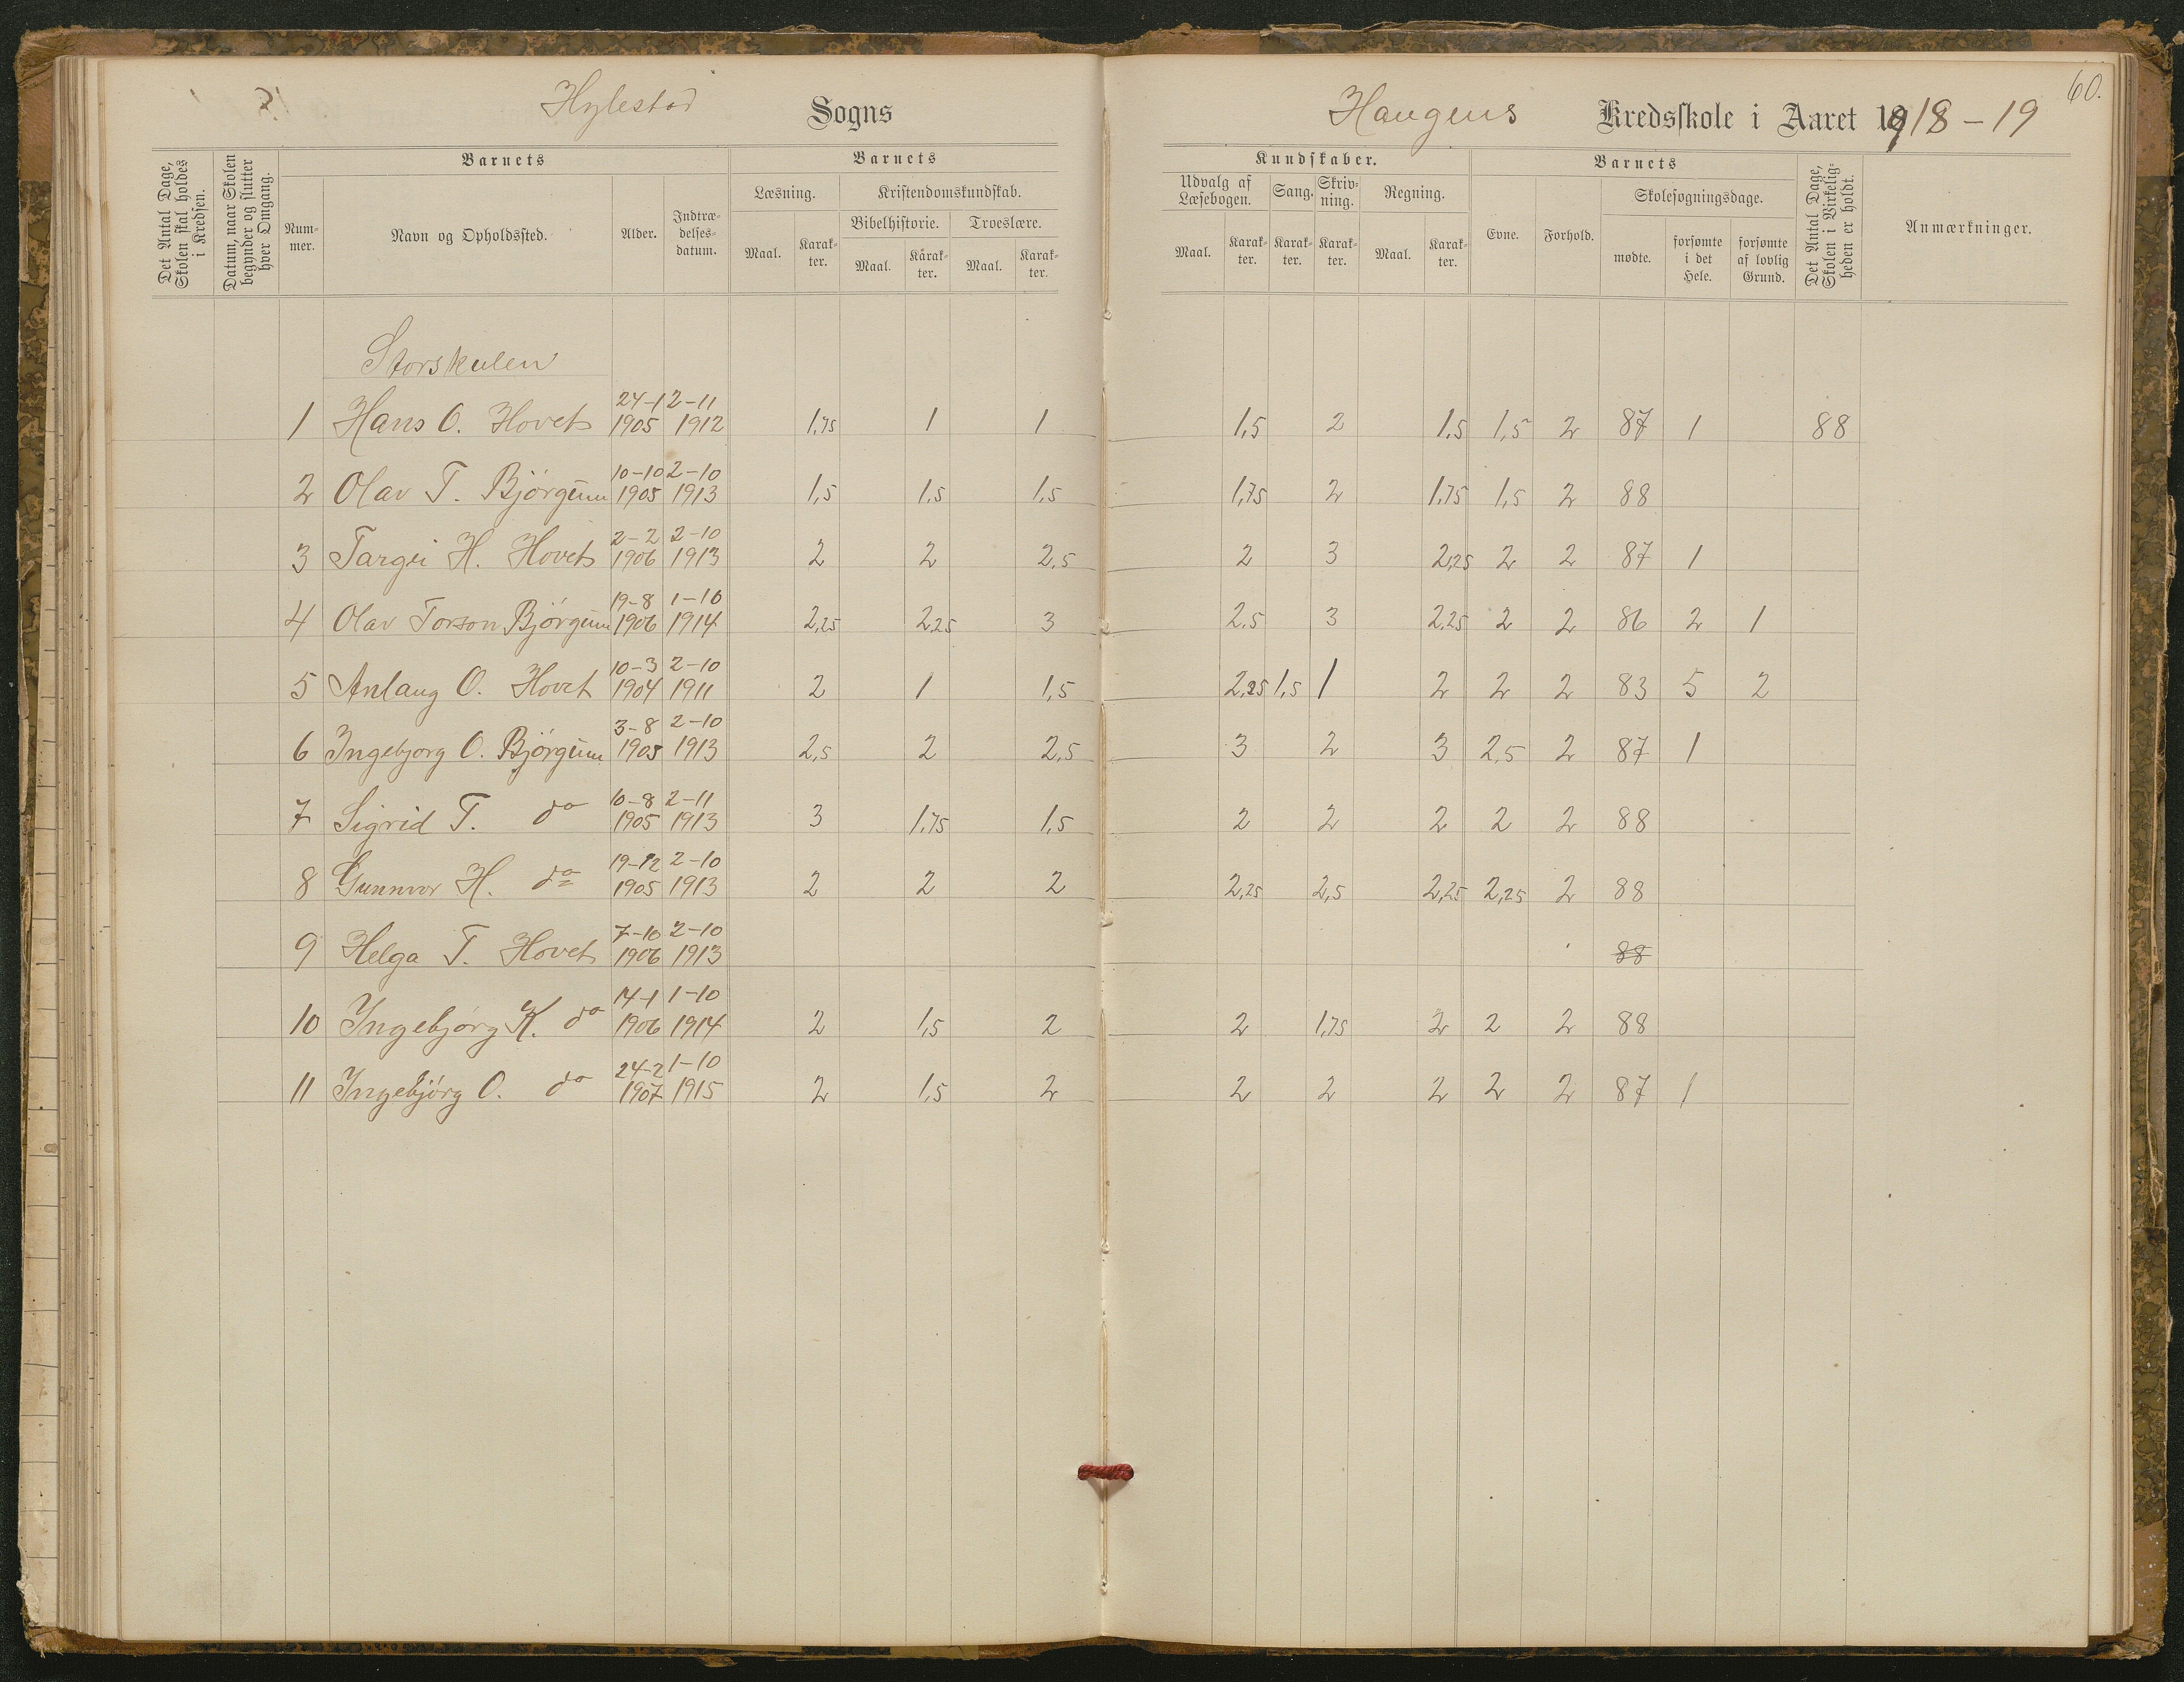 Hylestad Sogns
Haugens Kredsskole i Aaret 1918-19
60.
Det Antal Dage, Skolen skal holdes i Kredsen.
Datum, naar Skolen begynder og slutter hver Omgang.
Barnets
Nummer.
Navn og Opholdssted.
Alder.
Indtrædelsesdatum.
Barnets
Læsning.
Maal.
Karakter.
Kristendomskundskab.
Bibelhistorie.
Maal.
Karakter.
Troeslære.
Maal.
Karakter.
Kundskaber.
Udvalg af Læsebogen.
Maal.
Karakter.
Sang.
Karakter.
Skrivning.
Karakter.
Regning.
Maal.
Karakter.
Barnets
Evne.
Forhold.
Skolesøgningsdage.
mødte.
forsømte i det Hele.
forsømte af lovlig Grund.
Det Antal Dage, Skolen i Virkeligheden er holdt.
Anmærkninger.
Storskulen
1 Hans O. Hovet 24-1 1905 2-11 1912 1,75 1 1 1,5 2 1,5 1,5 2 87 1 88
2 Olav T. Bjørgum 10-10 1905 2-10 1913 1,5 1,5 1,5 1,75 2 1,75 1,5 2 88
3 Targei H. Hovet 2-2 1906 2-10 1913 2 2 2,5 2 3 2,25 2 2 87 1
4 Olav Torson Bjørgum 19-8 1906 1-10 1914 2,25 2,25 3 2,5 3 2,25 2 2 86 2 1
5 Anlaug O. Hovet 10-3 1904 2-10 1911 2 1 1,5 2,25 1,5 1 2 2 2 83 5 2
6 Ingebjorg O. Bjørgum 3-8 1905 2-10 1913 2,5 2 2,5 3 2 3 2,5 2 87 1
7 Sigrid T. do 10-8 1905 2-11 1913 3 1,75 1,5 2 2 2 2 2 88
8 Gunnvor H. do 19-12 1905 2-10 1913 2 2 2 2,25 2,5 2,25 2,25 2 88
9 Helga T. Hovet 7-10 1906 2-10 1913 88
10 Ingebjørg K. do 14-1 1906 1-10 1914 2 1,5 2 2 1,75 2 2 2 88
11 Ingebjørg O. do 24-2 1907 1-10 1915 2 1,5 2 2 2 2 2 2 87 1